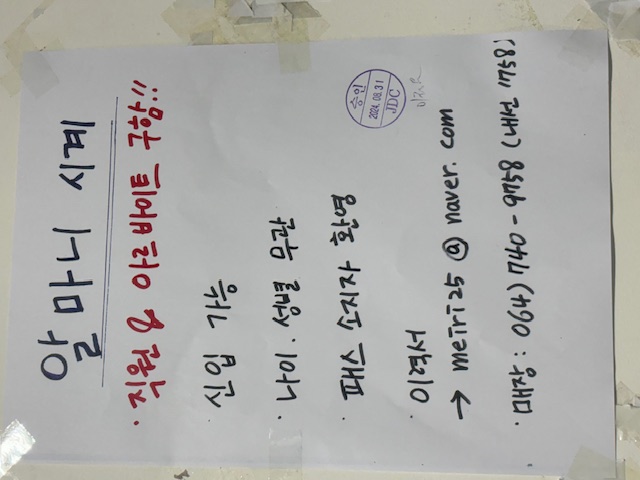 알마니 시계
· 직원 & 아르바이트 구함!!
신입 가능
· 나이 · 성별 무관
· 패스 소지자 환영
· 이력서
→ meiri25 @ naver.com
· 매장 : 064) 740 - 9758 (내선 1758)
승인
2024.08.31
JDC